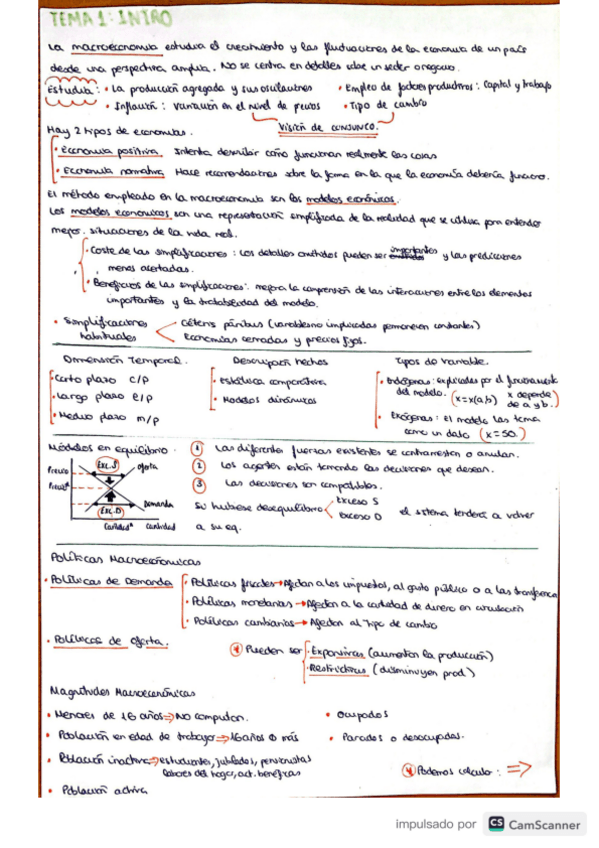 TEMA 1: INTRO
La macroeconomía estudia el crecimiento y las fluctuaciones de la economía de un país
desde una perspectiva amplia. No se centra en detalles sobre un sector o negocio.
Estudia: • La producción agregada y sus oscilaciones • Empleo de factores productivos: Capital y trabajo
• Inflación: variación en el nivel de precios • Tipo de cambio
Visión de CONJUNTO.
Hay 2 tipos de economías.
• Economía positiva. Intenta describir cómo funcionan realmente las cosas
• Economía normativa. Hace recomendaciones sobre la forma en la que la economía debería funcionar.
El método empleado en la macroeconomía son los modelos económicos.
Los modelos económicos son una representación simplificada de la realidad que se utiliza para entender
mejor situaciones de la vida real.
• Coste de las simplificaciones: Los detalles omitidos pueden ser importantes y las predicciones
menos acertadas.
• Beneficios de las simplificaciones: mejora la comprensión de las interacciones entre los elementos
importantes y la tratabilidad del modelo.
• Simplificaciones habituales
Céteris páribus (variables no implicadas permanecen constantes)
Economías cerradas y precios fijos.
Dimensión Temporal.
• Corto plazo c/p
• Largo plazo l/p
• Medio plazo m/p
Descripción hechos
• Estática comparativa
• Modelos dinámicos
Tipos de variable.
• Endógenas: explicadas por el funcionamiento
del modelo. (x=x(a,b) x depende de a y b.)
• Exógenas: El modelo las toma
como un dato (x=50.)
Modelos en equilibrio.
Precio
Exc.S
oferta
Precio*
Exc.D
Demanda
Cantidad*
cantidad
1 Las diferentes fuerzas existentes se contrarrestan o anulan.
2 Los agentes están tomando las decisiones que desean.
3 Las decisiones son compatibles.
Si hubiese desequilibrio
Exceso S
Exceso D
el sistema tenderá a volver
a su eq.
Políticas Macroeconómicas
• Políticas de Demanda
• Políticas fiscales → Afectan a los impuestos, al gasto público o a las transferencias
• Políticas monetarias → Afectan a la cantidad de dinero en circulación
• Políticas cambiarias → Afectan al tipo de cambio
• Políticas de oferta.
Pueden ser
• Expansivas (aumentan la producción)
• Restrictivas (disminuyen prod)
Magnitudes Macroeconómicas
• Menores de 16 años ⇒ No computan.
• Población en edad de trabajar ⇒ 16 años o más
• Población inactiva ⇒ estudiantes, jubilados, pensionistas
labores del hogar, act. benéficas
• Población activa
• Ocupados
• Parados o desocupados.
Podemos calcular: ⇒
impulsado por CS CamScanner